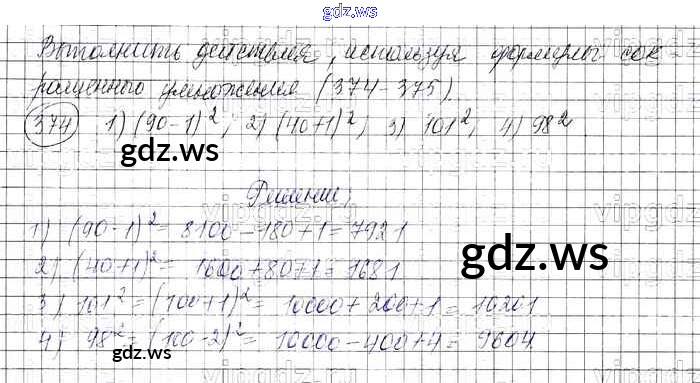 gdz.ws
Выполнить действия, используя формулы сок-
ращенного умножения (374-375).
374 1) (90-1)²; 2) (40+1)²; 3) 101²; 4) 98²
gdz.ws
Решение:
1) (90-1)² = 8100 - 180 + 1 = 7921
2) (40+1)² = 1600 + 80 + 1 = 1681
gdz.ws
3) 101² = (100+1)² = 10000 + 200 + 1 = 10201
4) 98² = (100-2)² = 10000 - 400 + 4 = 9604.
gdz.ws